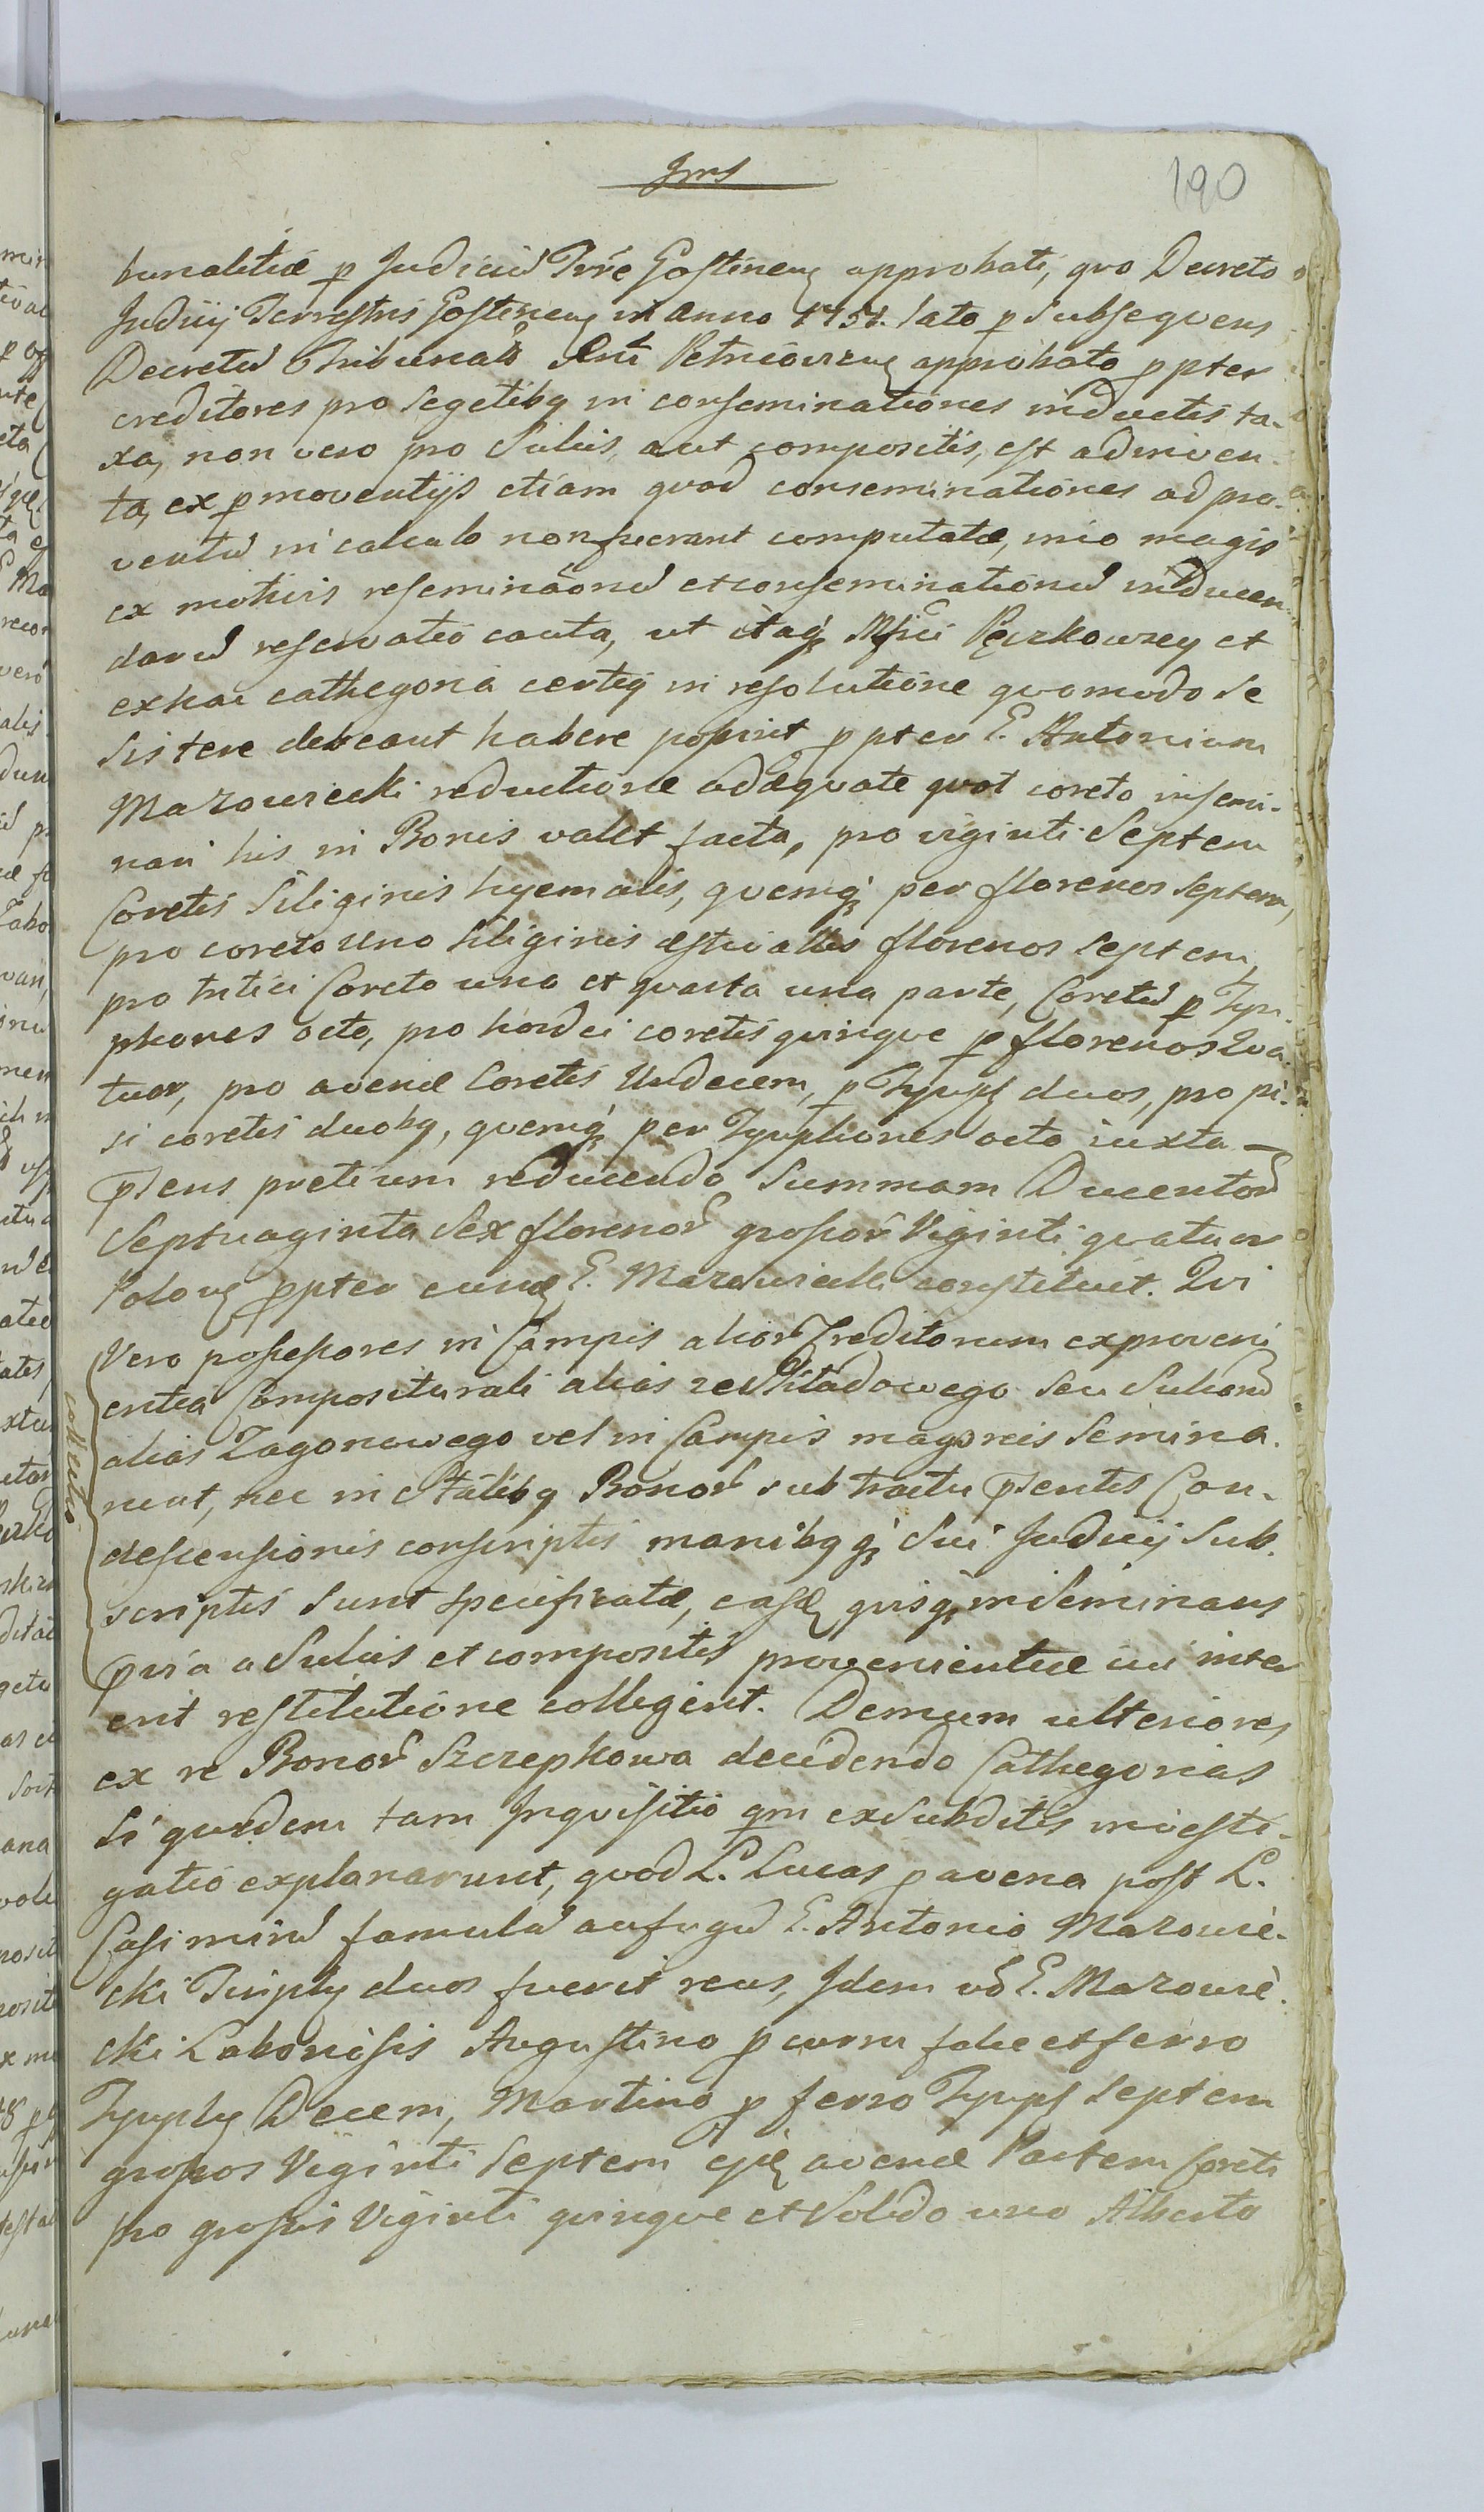 Jms
190
bunalitiæ p Judiciũ Trře Gostineñ approbati, quo Decreto
Judicij Terrestris Gostineñ in Anno 1751. lato p Subsequens
Decretũ Tribunalis Petricovieñ approbato ppter
creditores pro Segetibq in conseminationes inductis ta-
xa, non vero pro Sulcis, aut compositis, est adinven-
ta, ex pmoventijs etiam quod conseminationes ad pro-
ventũ in calculo non fuerant computatæ, imo magis
ex motivis reseminãonũ et conseminationũ inducen-
darũ reservatio cauta, ut itaq Mfici Pęczkowscy et
ex hac cathegoria certiq in resolutione quomodo se
sistere debeant habere possint ppter G. Antonium
Mazowiecki reductione adæquate quot coreto insemi-
nari his in Bonis valet facta, pro viginti Septem
Coretis Siliginis hyemalis, quemq per florenos Septem,
pro coreto uno Siliginis æstivalis florenos Septem,
pro tritici Coreto uno et quarta una parte, Coretũ p Tym-
phones octo, pro hordei coretis quinque p florenos Qua-
tuor, pro avenæ Coretis Undecem, p Tymph duos, pro pi-
si coretis duobq, quemq per Tymphones octo iuxta
pñens pretium reducendo Summam Ducentoř
Septuaginta Sex florenoř grossoř Viginti quatuor
Poloñ ppter eund G. Mazowiecki constituit. Qui
Vero possessores in Campis alioř Creditorum ex proveni
entia Compositurali alias ze Składowego seu Sulcoř
alias Zagonowego vel in Campis magoneis Semina-
runt, nec in Tãlibq Bonoř sub tractu pñentis Con-
descensionis conscriptis manibqq Sui Judicij Sub-
scriptis Sunt specificatæ, easd quisq inseminans
pvia a Sulcis et compositis provenientiæ cui inter
erit restitutione colligent. Demum ulteriores
ex re Bonoř Szczepkowa decidendo Cathegorias
Si quidem tam Inquisitio qm ex Subditis investi-
gatio explanarunt, quod L. Lucas p avena post L.
Casimirũ famulũ aufugũ G. Antonio Mazowie-
cki Timphy duos fuerit reus, Idem vo G. Mazowie-
cki Laboriosis Augustino p curru falce et ferro
Tymphy Decem, Martino p ferro Tymph Septem
grossos Viginti Septem avenæ Partem Coreti
pro grossis Viginti quinque et Solido uno Alberto
collectio